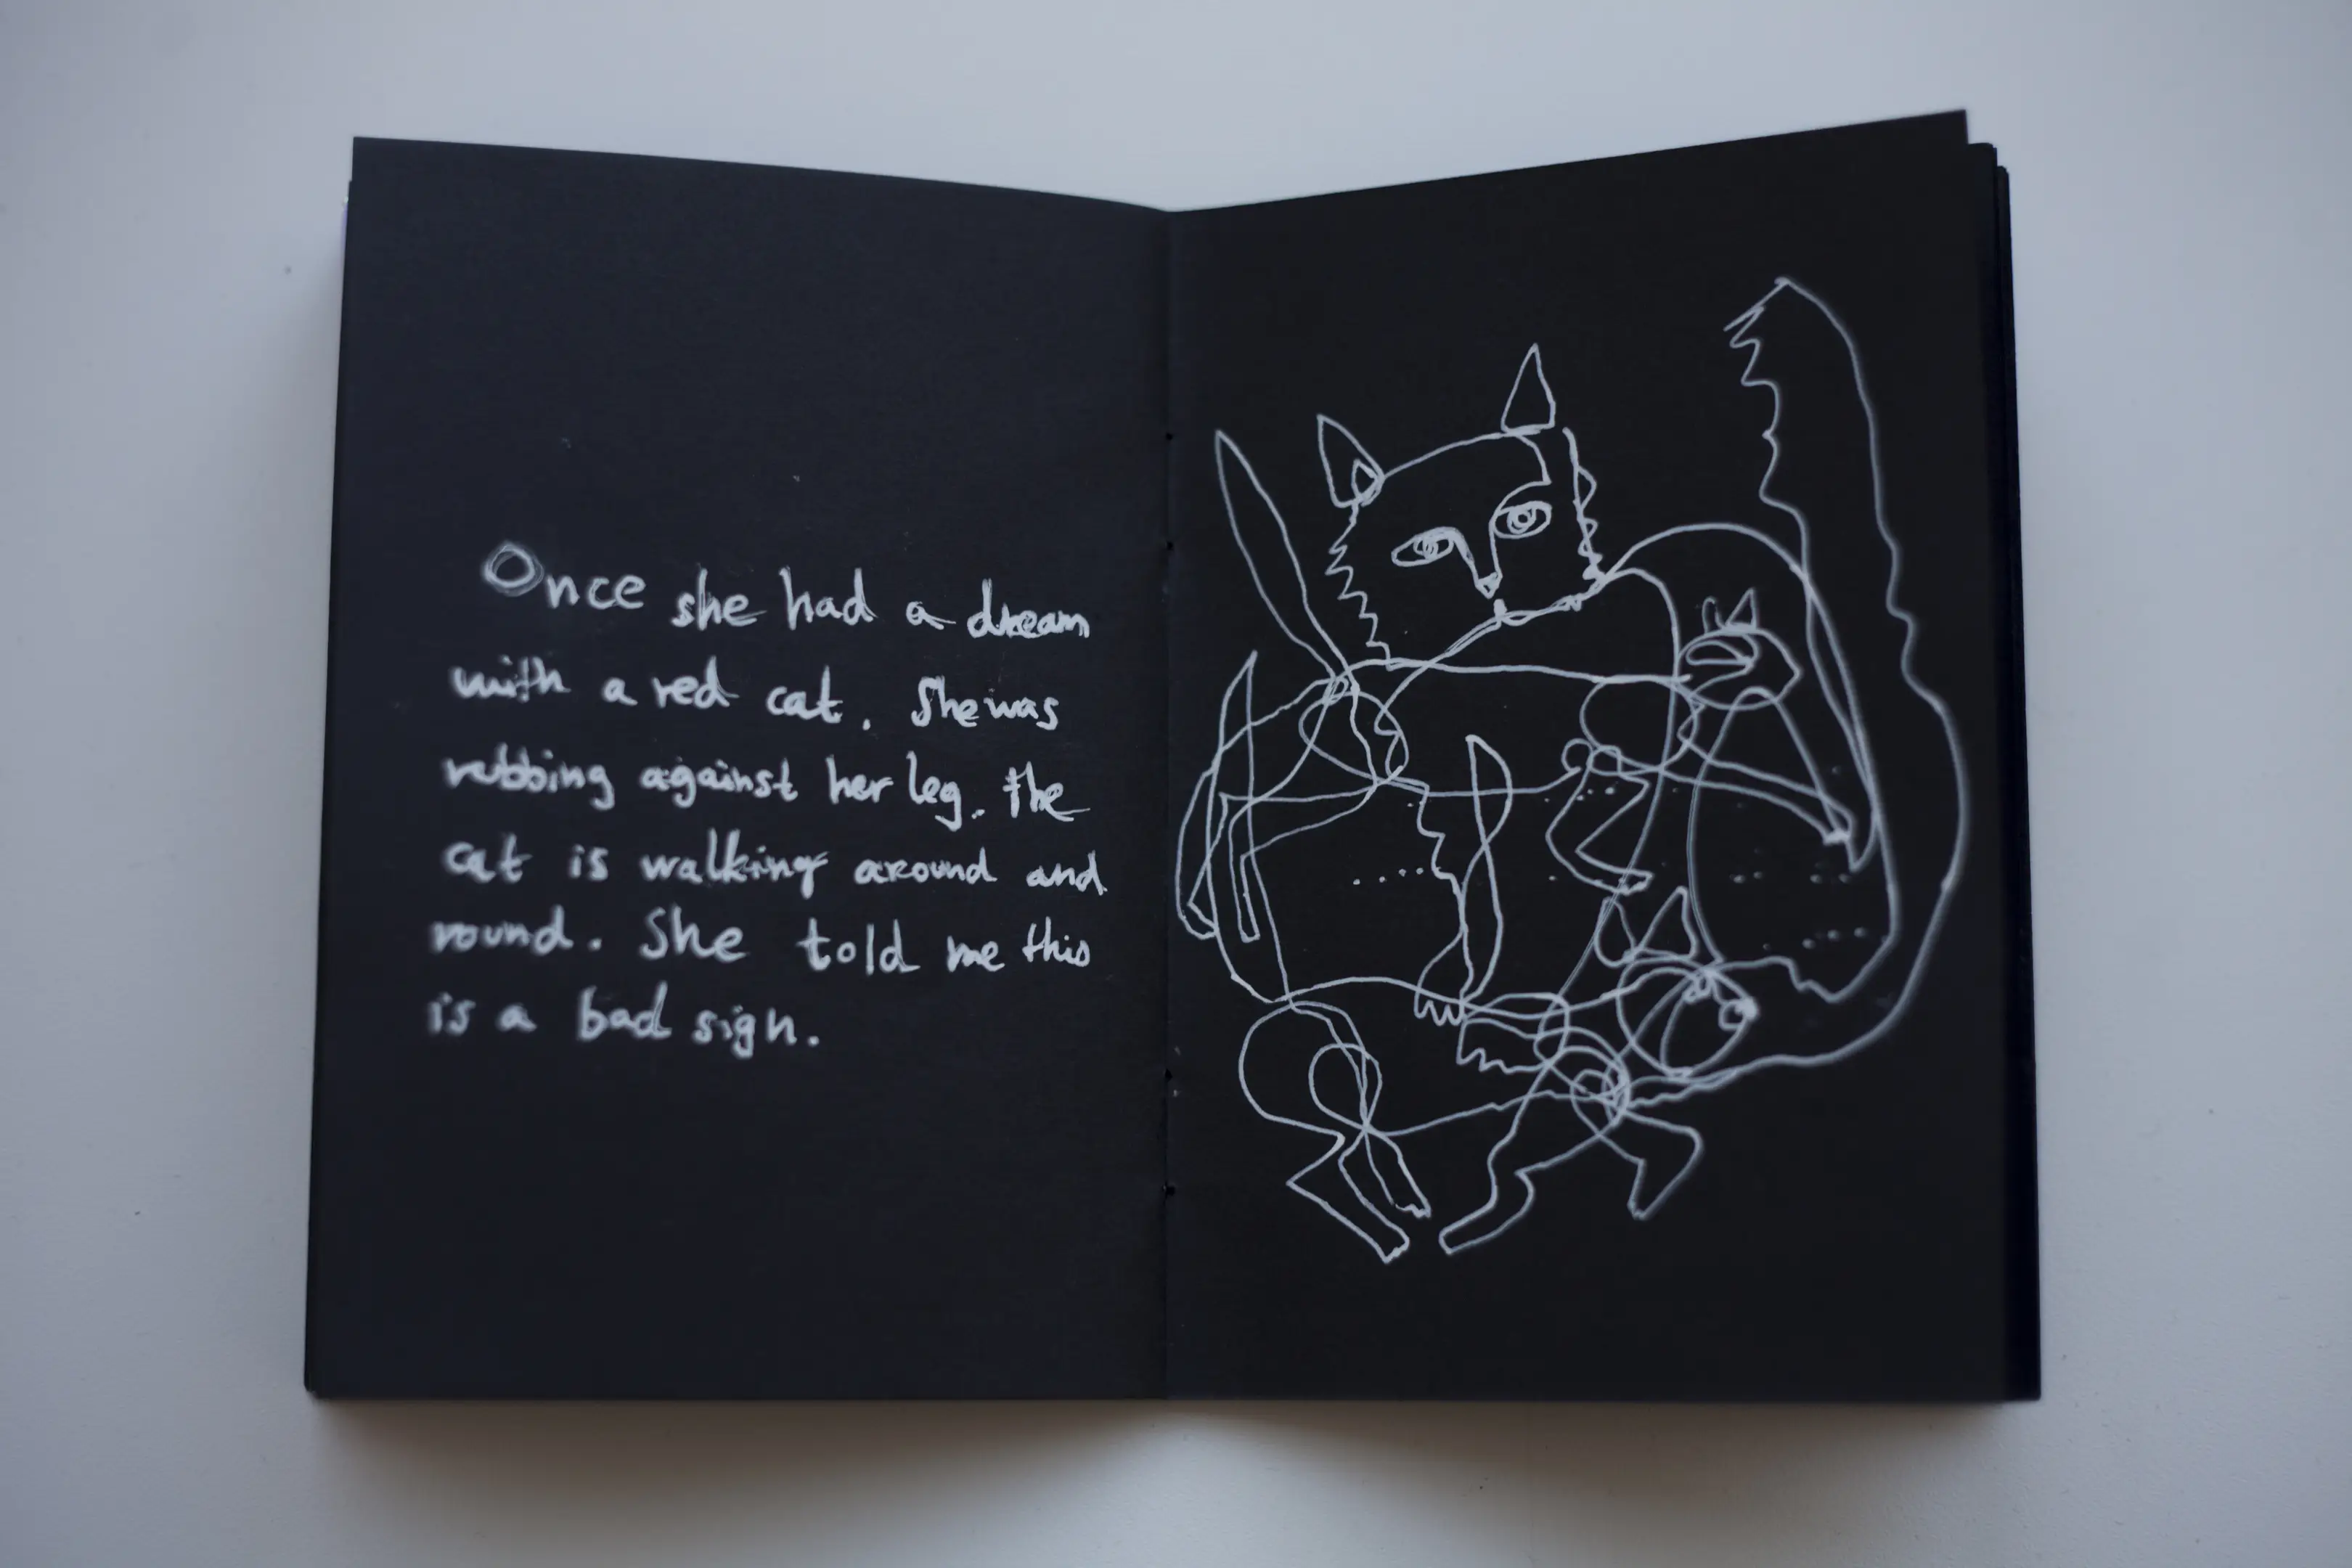 Once she had a dream
with a red cat. She was
rubbing against her leg. The
cat is walking around and
round. She told me this
is a bad sign.